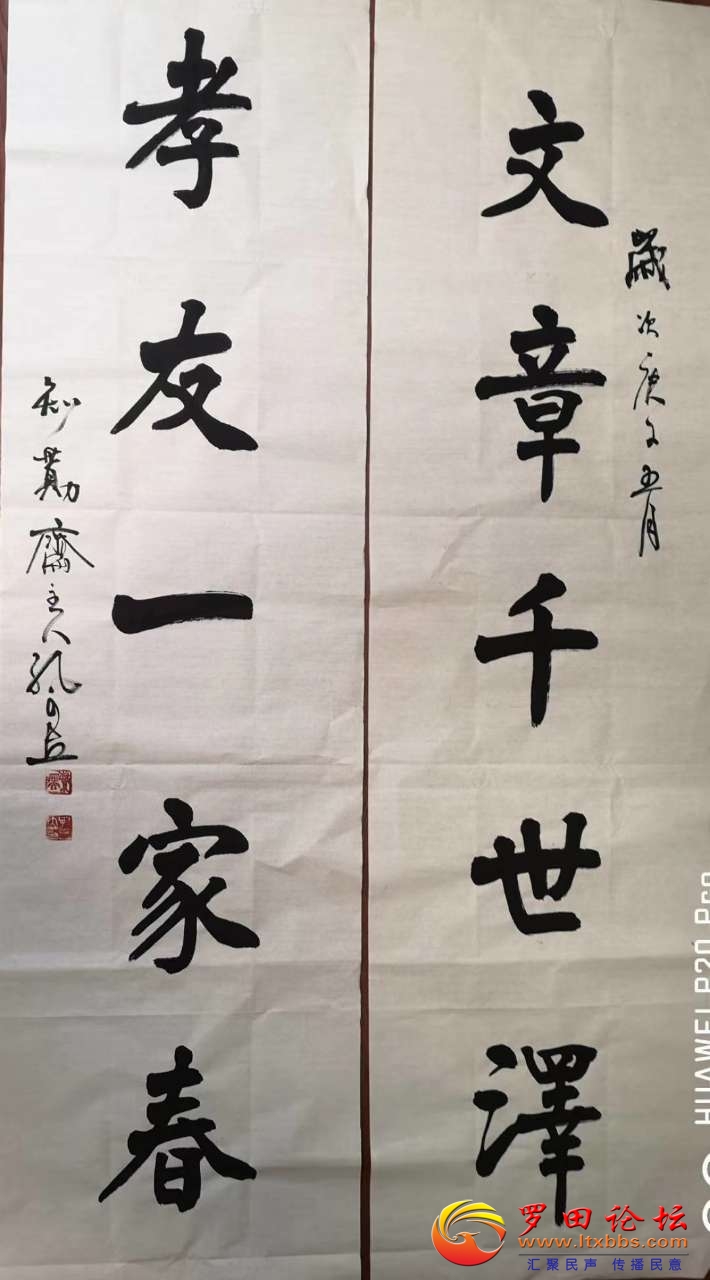 文章千世澤
歲次庚子五月
孝友一家春
知勤齋主人
HUAWEI P20 Pro
罗田论坛
www.ltxbbs.com
汇聚民声 传播民意